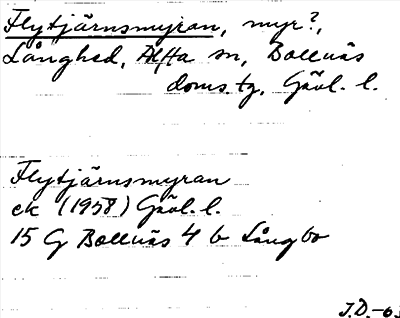 Flytjärnsmyran, myr?,
Långhed, Alfta sn, Bollnäs
doms. tg, Gävl. l.
Flytjärnsmyran
ek (1958) Gävl. l.
15 G Bollnäs 4 b Långbo
J.D.-63